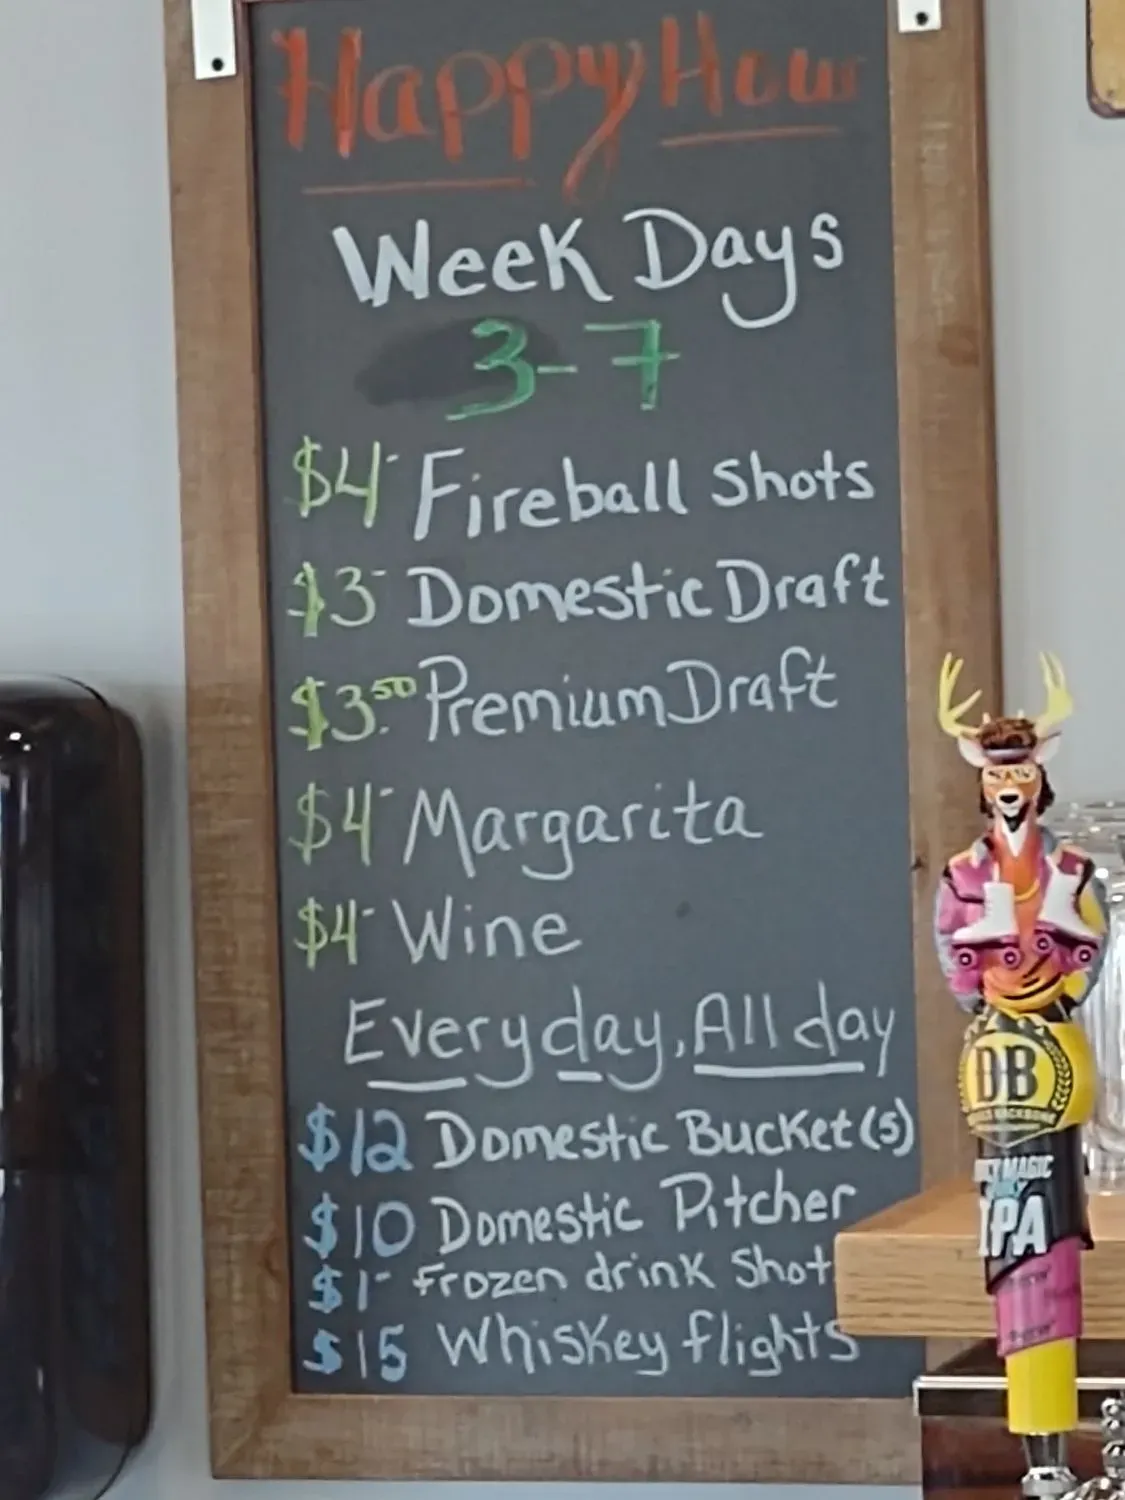 Happy Hour
Week Days
3-7
$4- Fireball Shots
$3- Domestic Draft
$3.50 Premium Draft
$4- Margarita
$4- Wine
Everyday, All day
$12 Domestic Bucket(s)
$10 Domestic Pitcher
$1- Frozen drink Shot
$15 Whiskey flights
DB
MAGIC
IPA